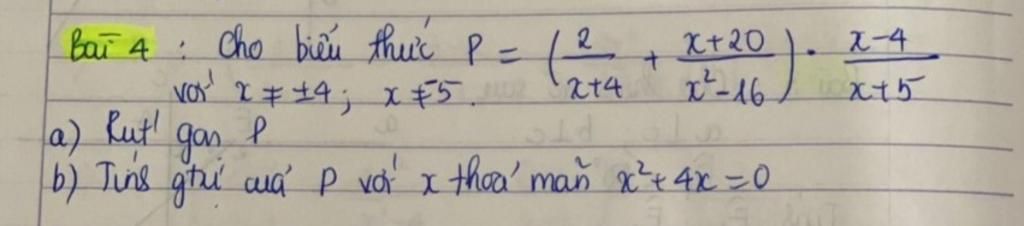 Bài 4 : Cho biểu thức P = (2/(x+4) + (x+20)/(x²-16)) · (x-4)/(x+5)
với x ≠ ±4; x ≠ -5.
a) Rút gọn P
b) Tính gtrị của P với x thoả mãn x²+4x=0